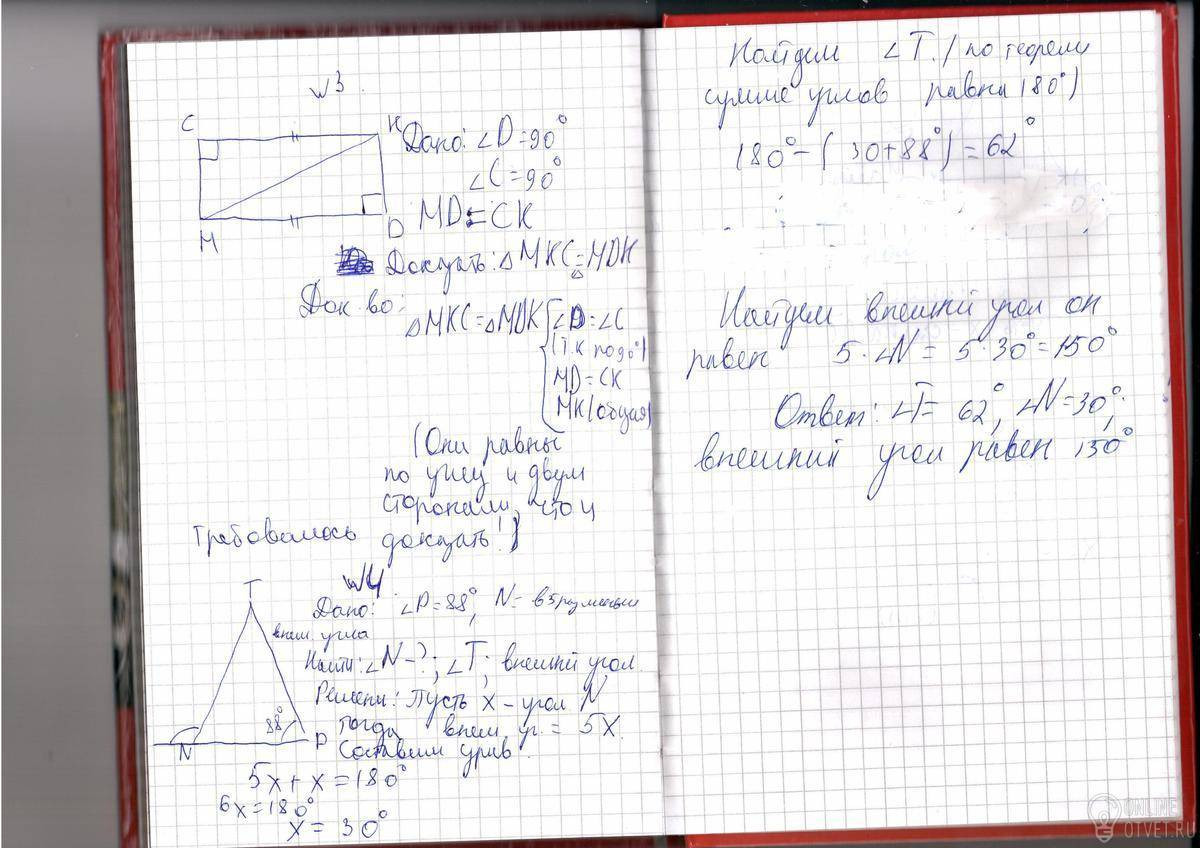 №3.
C
K
M
D
Дано: ∠D=90°
∠C=90°
MD=CK
Доказать: △MKC=△MDK
Док во:
△MKC=△MDK
∠D=∠C
(т.к по 90°)
MD=CK
MK(общая)
(Они равны
по углу и двум
сторонам, что и
требовалось доказать!)
№4
T
N
P
88°
Дано: ∠P=88°, N= в 5 раз меньше
внеш. угла
Найти: ∠N-?; ∠T; внешний угол.
Решени: Пусть x - угол N,
тогда внеш. уг. = 5x.
Составим урав.
5x+x=180°
6x=180°
x=30°
Найдем ∠T. (по теореме
сумме углов равна 180°)
180°-(30+88°)=62°
Найдем внешний угол он
равен 5·∠N= 5·30°=150°
Ответ: ∠T= 62°, ∠N=30°,
внешний угол равен 150°
ONLINE
OTVET.RU